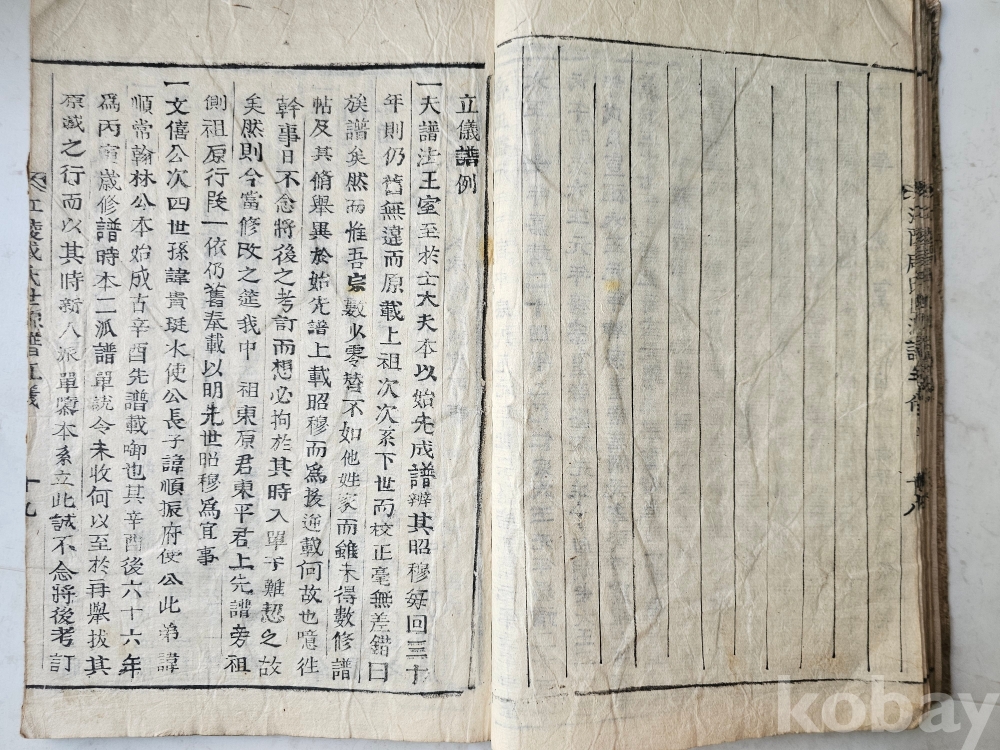 立儀譜例
一夫譜法王室至於士大夫本以始先成譜辨其昭穆每回三十
年則仍舊無違而原載上祖次次系下世而校正毫無差錯曰
族譜矣然而惟吾宗數少零替不如他姓家而雖未得數修譜
帖及其脩舉異於始先譜上載昭穆而爲後迎載何故也噫徃
幹事日不念將後之考訂而想必拘於其時入單子難恝之故
矣然則今當修改之筵我中 祖東原君東平君上先譜旁祖
側祖原行段一依仍舊奉載以明先世昭穆爲宜事
一文僖公次四世孫諱貴珽水使公長子諱順振府使公此第諱
順常翰林公本始成古辛酉先譜載啣也其辛酉後六十六年
爲丙寅歲修譜時本二派譜單統令未收何以至於再舉拔其
原滅之行而以其時新入派單纂本系立此誠不念將後考訂
江陵咸氏世源譜立儀 十九
kobay